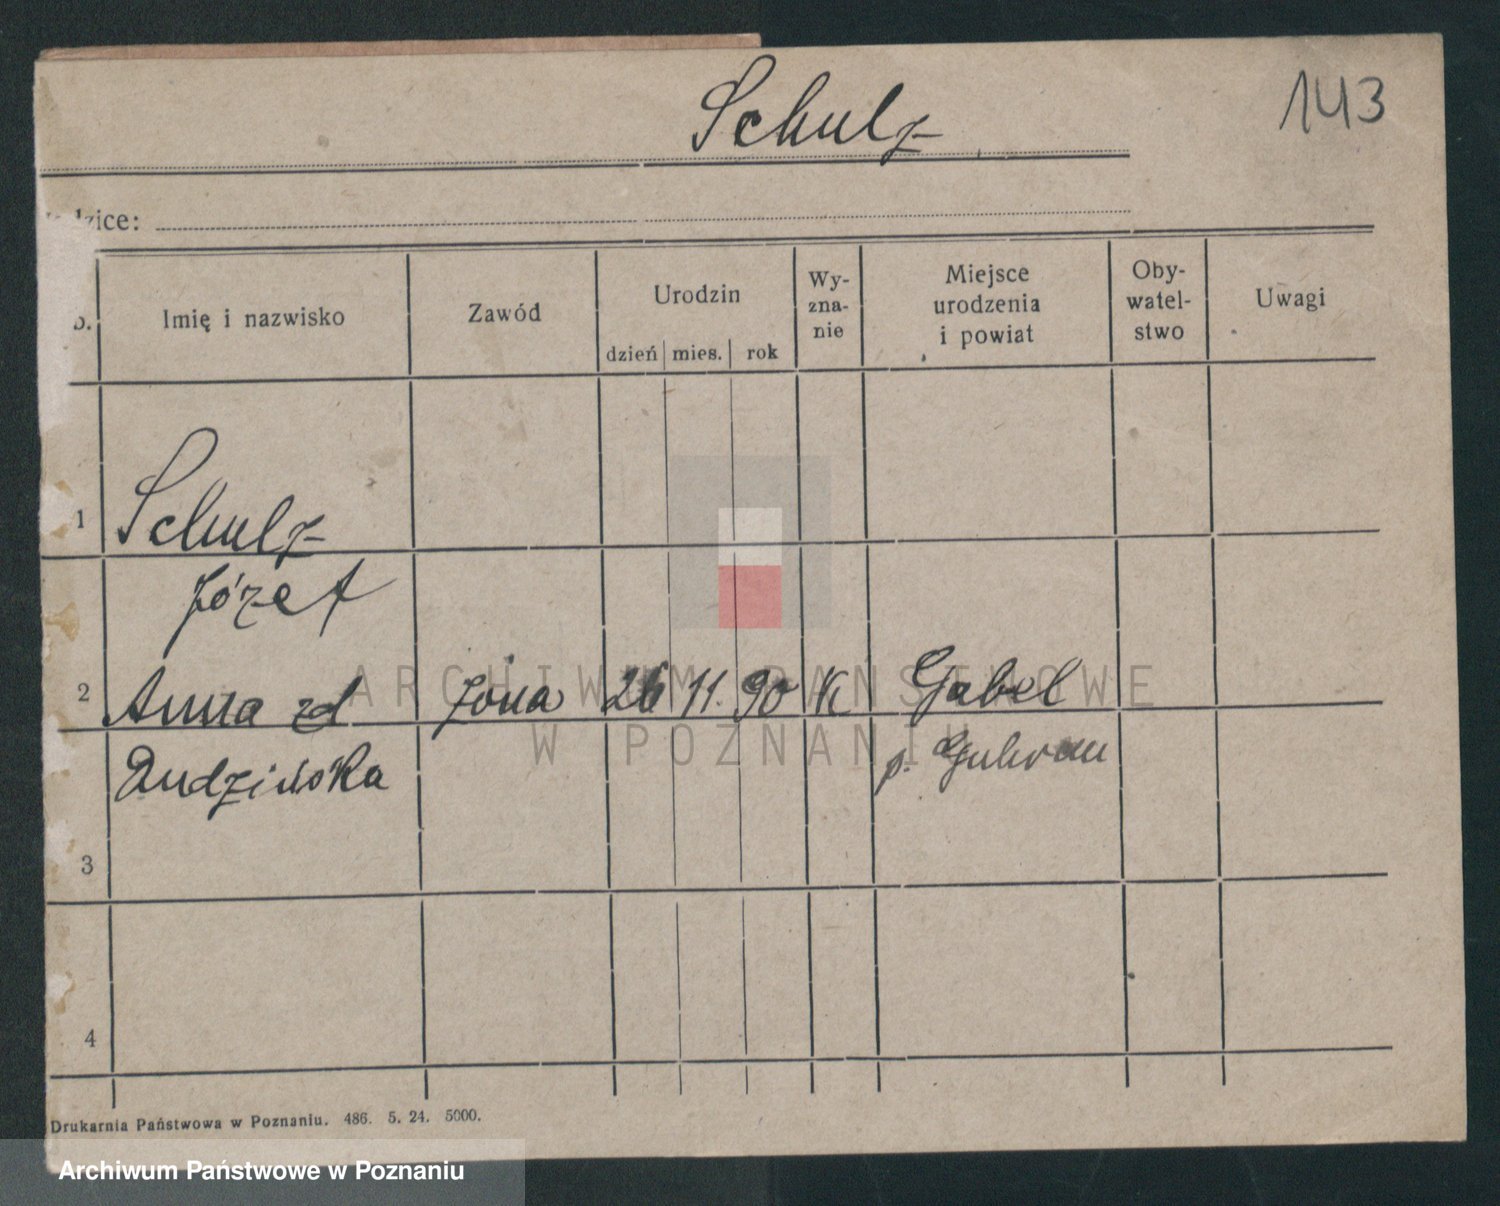 Schulz
143
dzice:
b. Imię i nazwisko Zawód Urodzin dzień mies. rok Wy-zna-nie Miejsce urodzenia i powiat Oby-watel-stwo Uwagi
1 Schulz
Józef
2 Anna zd żona 26 11. 90 K Gabel
Dudzińska p. Guhrau
3
4
Drukarnia Państwowa w Poznaniu. 486. 5. 24. 5000.
ARCHIWUM PAŃSTWOWE
W POZNANIU
Archiwum Państwowe w Poznaniu